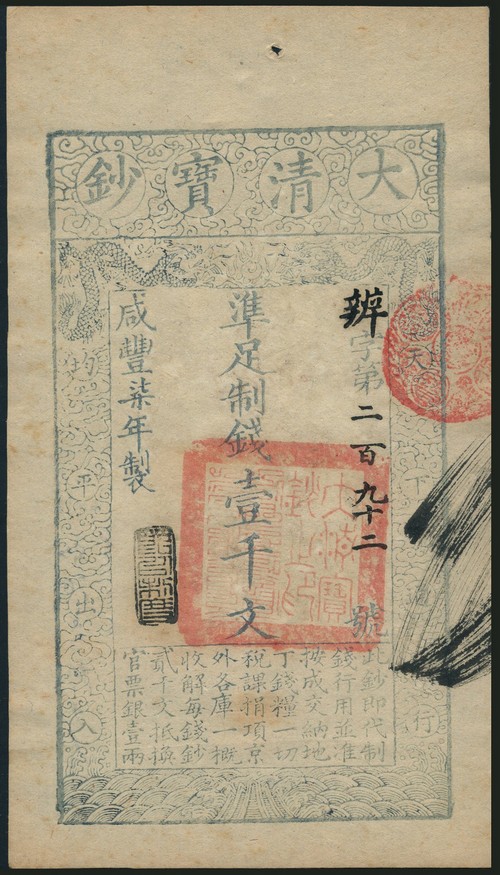 大清寶鈔
天下通行
均平出入
辨字第二百九十二號
準足制錢壹千文
咸豐柒年製
此鈔即代制
錢行用並准
按成交納地
丁錢糧一切
稅課捐項京
外各庫一概
收解每錢鈔
貳千文抵換
官票銀壹兩
大清寶鈔之印